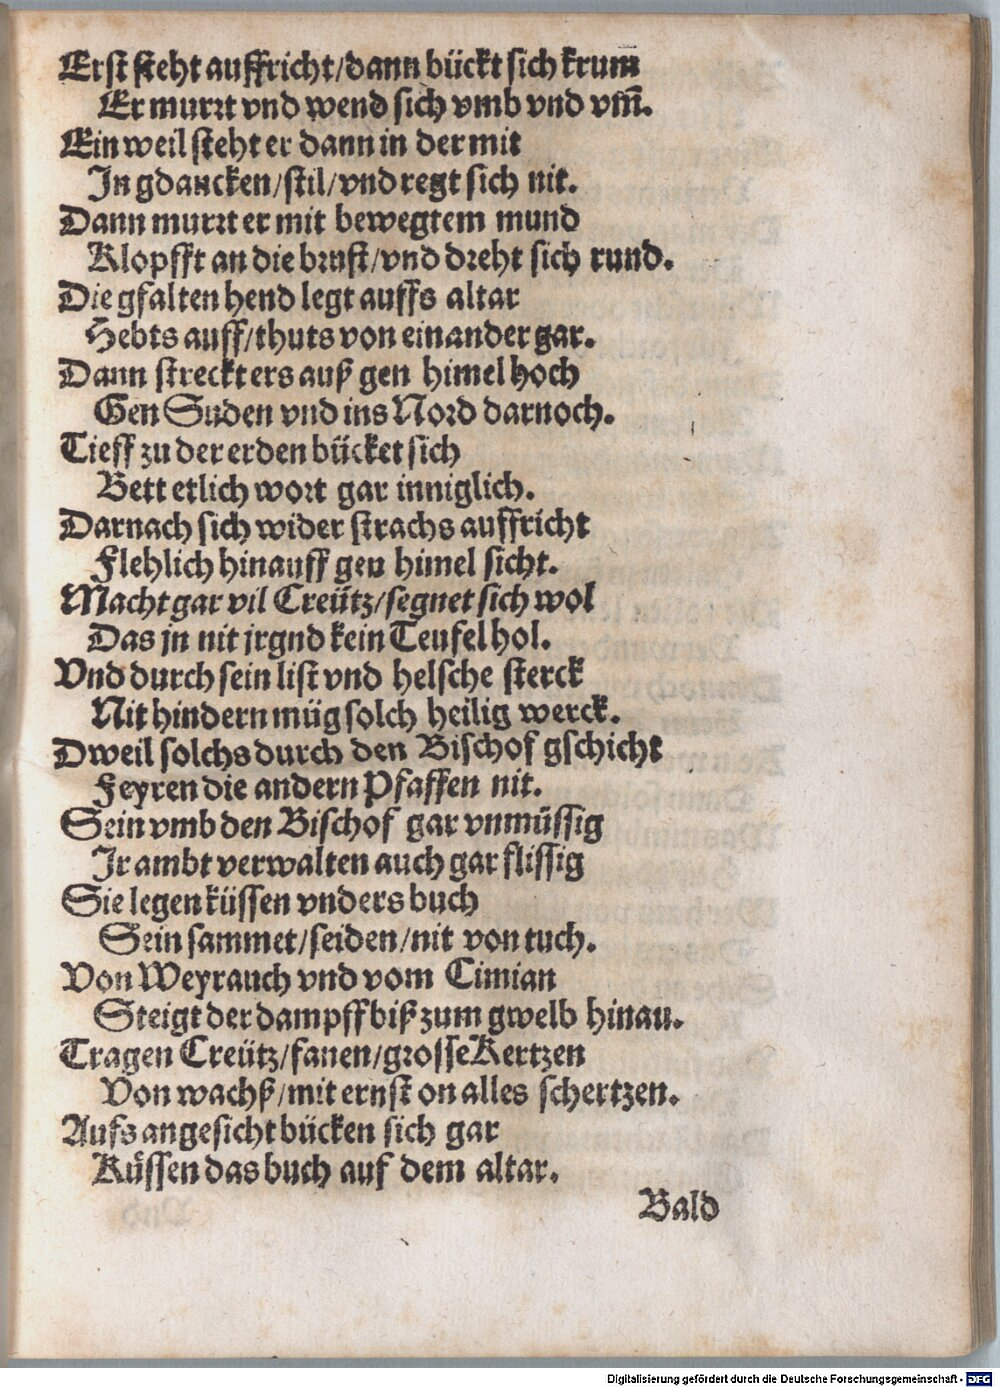 Erst steht auffricht/dann bückt sich krum
Er murrt vnd wend sich vmb vnd vm̃.
Ein weil steht er dann in der mit
In gdancken/stil/vnd regt sich nit.
Dann murrt er mit bewegtem mund
Klopfft an die brust/vnd dreht sich rund.
Die gfalten hend legt auffs altar
Hebts auff/thuts von einander gar.
Dann streckt ers auß gen himel hoch
Gen Suden vnd ins Nord darnoch.
Tieff zu der erden bücket sich
Bett etlich wort gar inniglich.
Darnach sich wider strachs auffricht
Flehlich hinauff gen himel sicht.
Macht gar vil Creütz/segnet sich wol
Das jn nit jrgnd kein Teufel hol.
Vnd durch sein list vnd helsche sterck
Nit hindern müg solch heilig werck.
Dweil solchs durch den Bischof gschicht
Feyren die andern Pfaffen nit.
Sein vmb den Bischof gar vnmüssig
Ir ambt verwalten auch gar flissig
Sie legen küssen vnders buch
Sein sammet/seiden/nit von tuch.
Von Weyrauch vnd vom Cimian
Steigt der dampff biß zum gwelb hinan.
Tragen Creütz/fanen/grosse Kertzen
Von wachß/mit ernst on alles schertzen.
Aufs angesicht bücken sich gar
Küssen das buch auf dem altar.
Bald
Digitalisierung gefördert durch die Deutsche Forschungsgemeinschaft - DFG